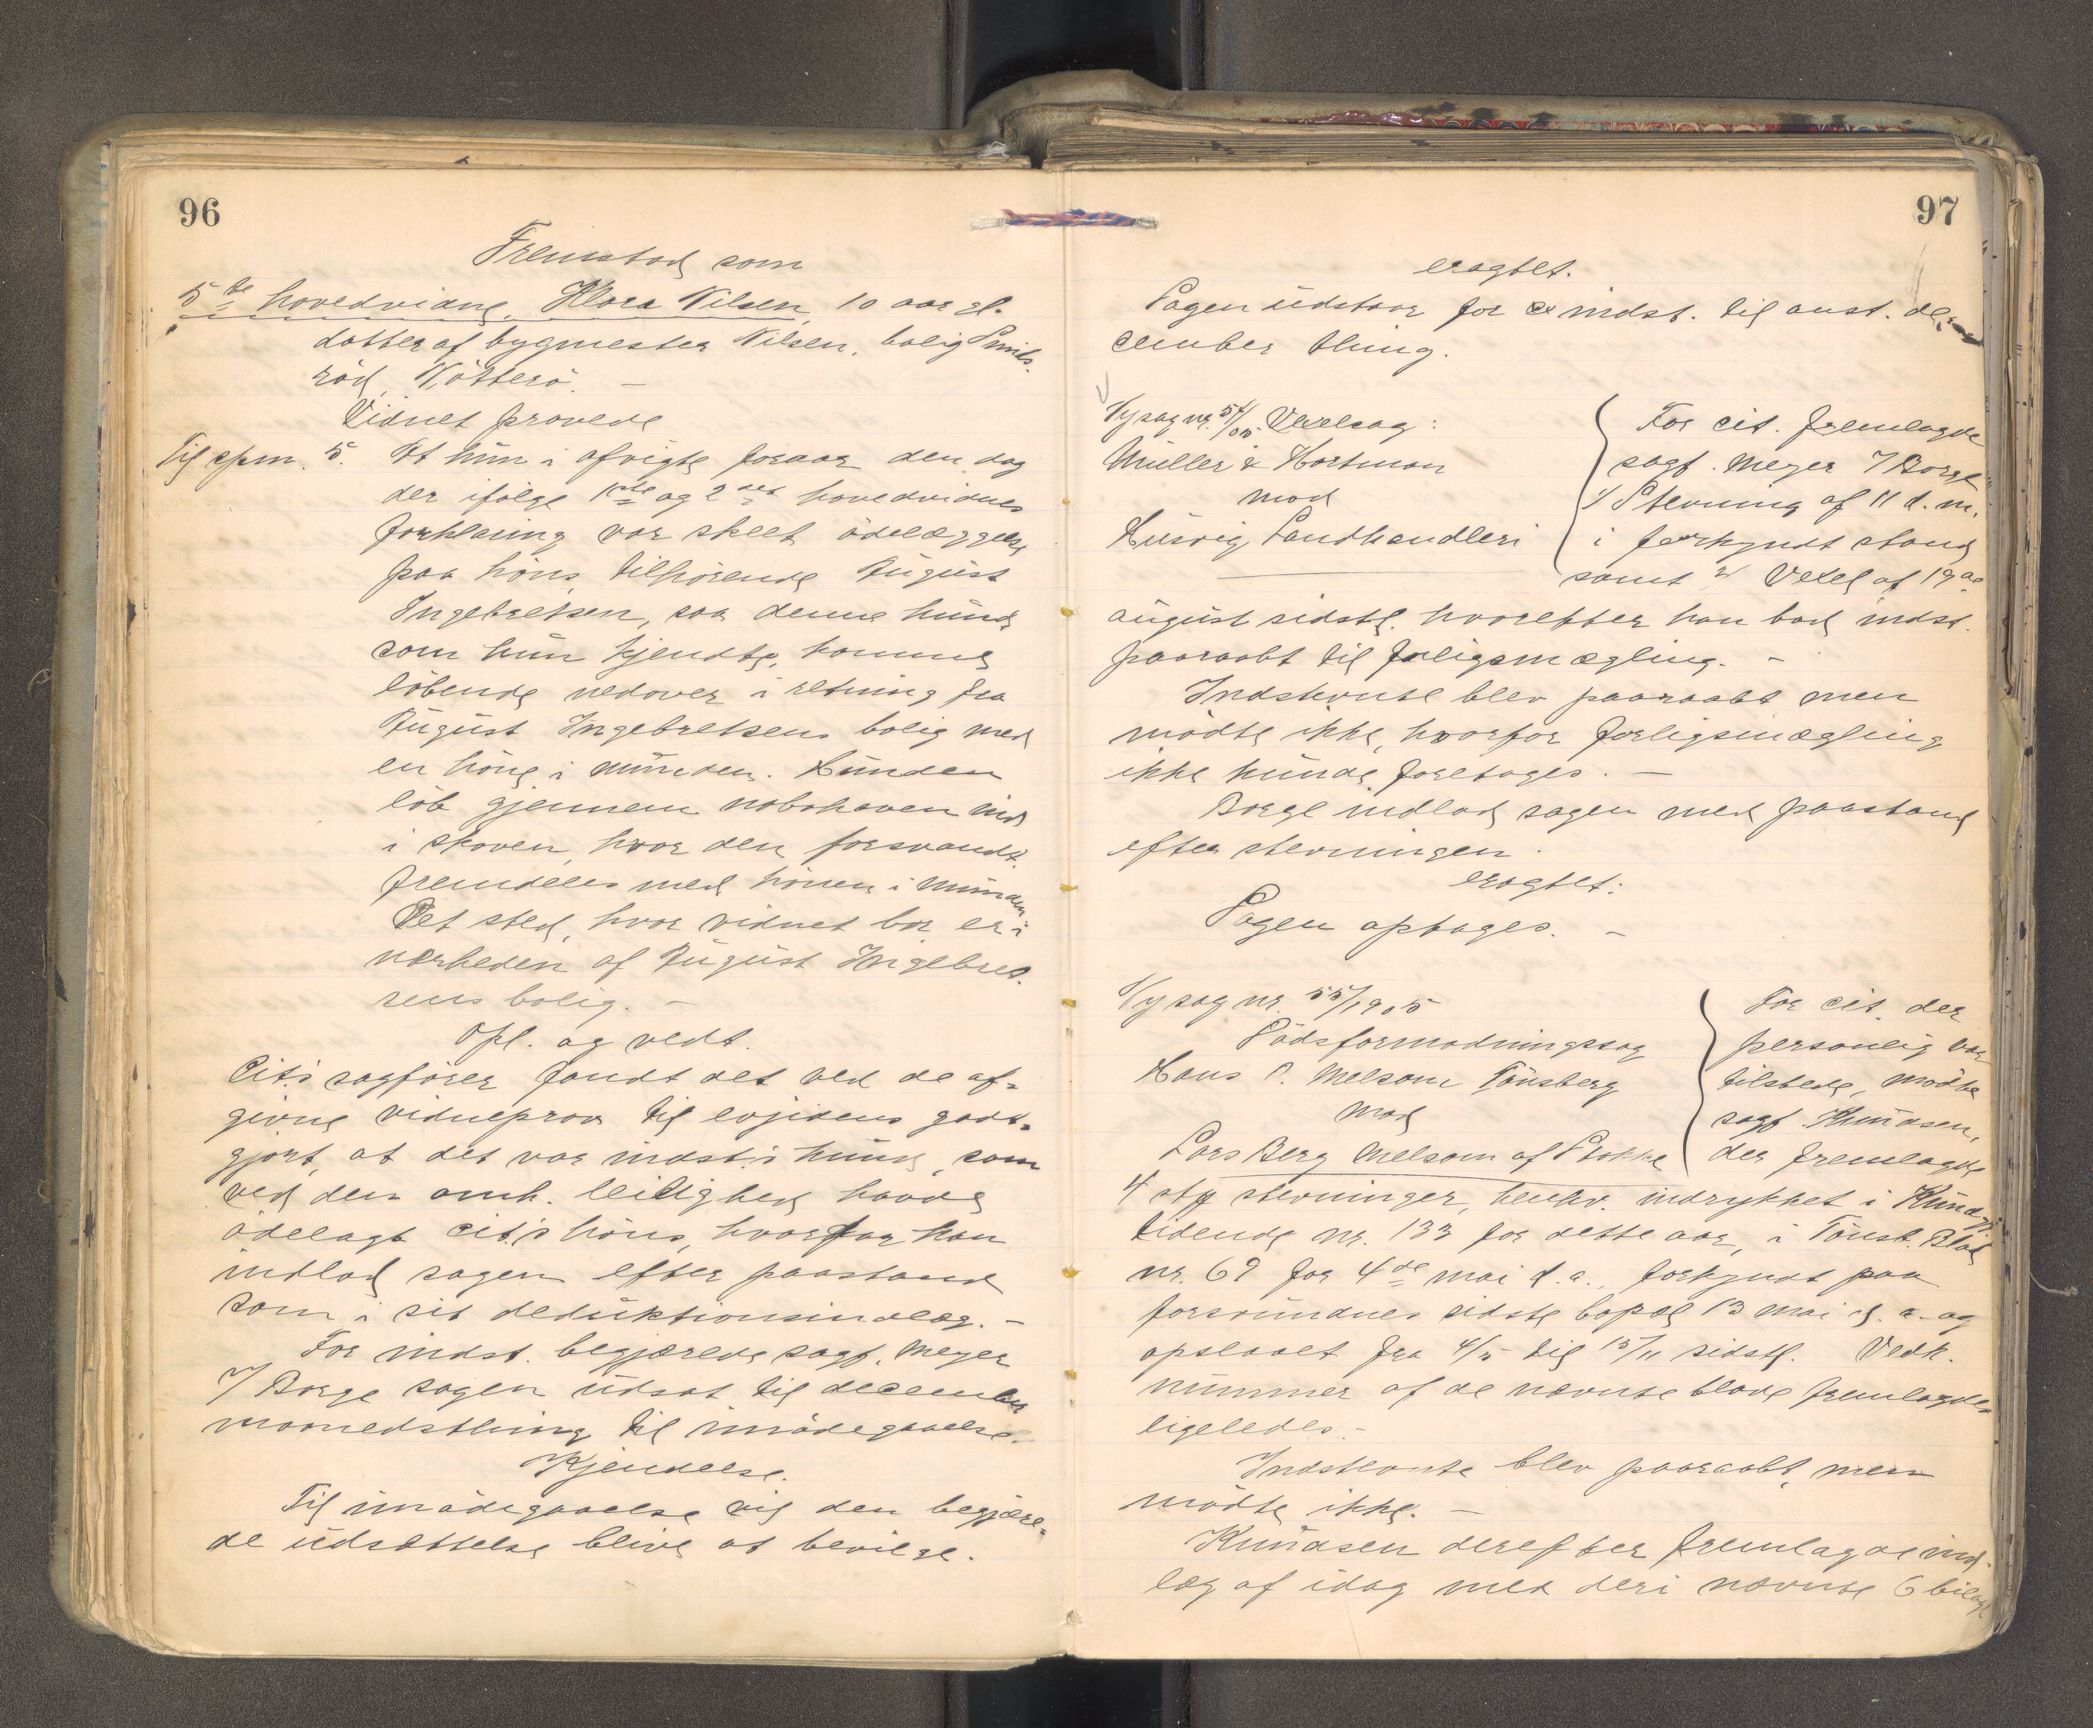 96
Fremstod som
5te hovedvidne, Klara Nilsen, 10 aar gl.
datter af bygmester Nilsen, bolig Smids-
röd, Nötterö. —
Vidnet provede
Til spm. 5. At hün i afvigte foraar den dag
der ifölge 1ste og 2det hovedvidnes
forklaring var skeet ödelæggelse
paa höns, tilhörende Aügüst
Ingebretsen, saa denne hünd,
som hün kjendte, komme
löbende nedover i retning fra
Aügüst Ingebretsens bolig med
en höne i münden. Hünden
löb gjennem nabohaven ind
i skoven, hvor den forsvandt
fremdeles med hönen i münden.
Det sted, hvor vidnet bor, er i
nærheden af Aügüst Ingebret-
sens bolig. —
Opl. og vedt.
Cit.s sagförer fandt det ved de af-
givne vidneprov til evidens godt-
gjort, at det var indst.s hünd, som
ved den omh. leilighed havde
ödelagt cit.s höns, hvorfor han
indlod sagen efter paastand
som i sit deduktionsindlæg. —
For indst. begjærede sagf. Meyer
v/ Borge sagen üdsat til december
maanedsthing til imödegaaelse.
Kjendelse.
Til imödegaaelse vil den begjære-
de üdsættelse blive at bevilge.
97
eragtet.
Sagen üdstaar for indst. til anst. de-
cember thing.
Ny sag nr. 54/05 Vexelsag:
Müller & Hartman
mod
Hüsvig Landhandleri
For cit. fremlagde
sagf. Meyer v/ Borge
1/ Stevning af 11 d. m.
i forkyndt stand
samt 2/ Vexel af 19de
aügüst sidstl. hvorefter han bad indst.
paaraabt til forligsmægling. —
Indstevnte blev paaraabt men
mödte ikke, hvorfor forligsmægling
ikke künde foretages. —
Borge indlod sagen med paastand
efter stevningen.
eragtet:
Sagen optages. —
Ny sag nr. 55/1905
Dödsformodningssag
Hans P. Melsom Tönsberg
mod
Lars Berg Melsom af Stokke
For cit. der
personlig var
tilstede, mödte
sagf. Knüdsen,
der fremlagde
4 stk stevninger, henhv. indrykket i Kündgj.
tidende nr. 133 for dette aar, i Tönsb. Blad
nr. 69 for 4de mai d. a., forkyndt paa
forsvündnes sidste bopæl 13 mai d. a. og
opslaaet fra 4/5 til 15/11 sidstl. Vedk.
nümmer af de nævnte blade fremlagdes
ligeledes. —
Indstevnte blev paaraabt, men
mödte ikke. —
Knüdsen derefter fremlagde ind-
læg af idag med deri nævnte 6 bilag